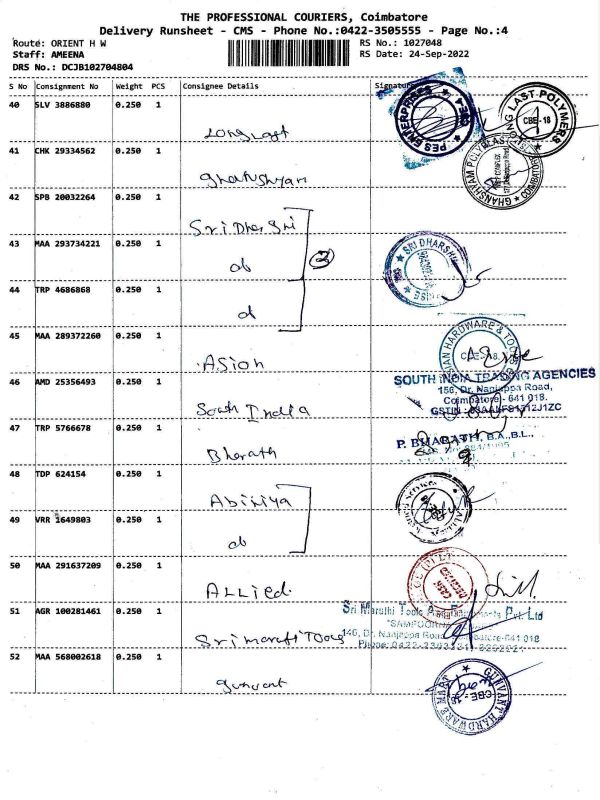 THE PROFESSIONAL COURIERS, Coimbatore
Delivery Runsheet - CMS - Phone No.:0422-3505555 - Page No.:4
Route: ORIENT H W RS No.: 1027048
Staff: AMEENA RS Date: 24-Sep-2022
DRS No.: DCJB102704804
S No Consignment No Weight PCS Consignee Details Signature
40 SLV 3886880 0.250 1
PES ENTERPRISES
LONG LAST POLYMERS
CBE-18
41 CHK 29334562 0.250 1
GHANSHYAM POLYPLAST COIMBATORE
42 SPB 20032264 0.250 1
Sri Dhar Sri
43 MAA 293734221 0.250 1
do
SRI DHARSHI
44 TRP 4686868 0.250 1
d
45 MAA 289372260 0.250 1
Asion
ASIAN HARDWARE & TOO
CBE-18
46 AMD 25356493 0.250 1
South India
SOUTH INDIA TRADING AGENCIES
156, Dr. Nanjappa Road,
Coimbatore - 641 018.
47 TRP 5766678 0.250 1
Bharath
P. BHARATH, B.A.,B.L.,
48 TDP 624154 0.250 1
49 VRR 1649803 0.250 1
do
50 MAA 291637209 0.250 1
ALLied.
51 AGR 100281461 0.250 1
Sri marati Tools
Sri Marathi Tools
146, Dr. Nanjappa Road, Coimbatore-641 018
52 MAA 568002618 0.250 1
gunvant
GUNVANT HARDWARE MART
CBE-18